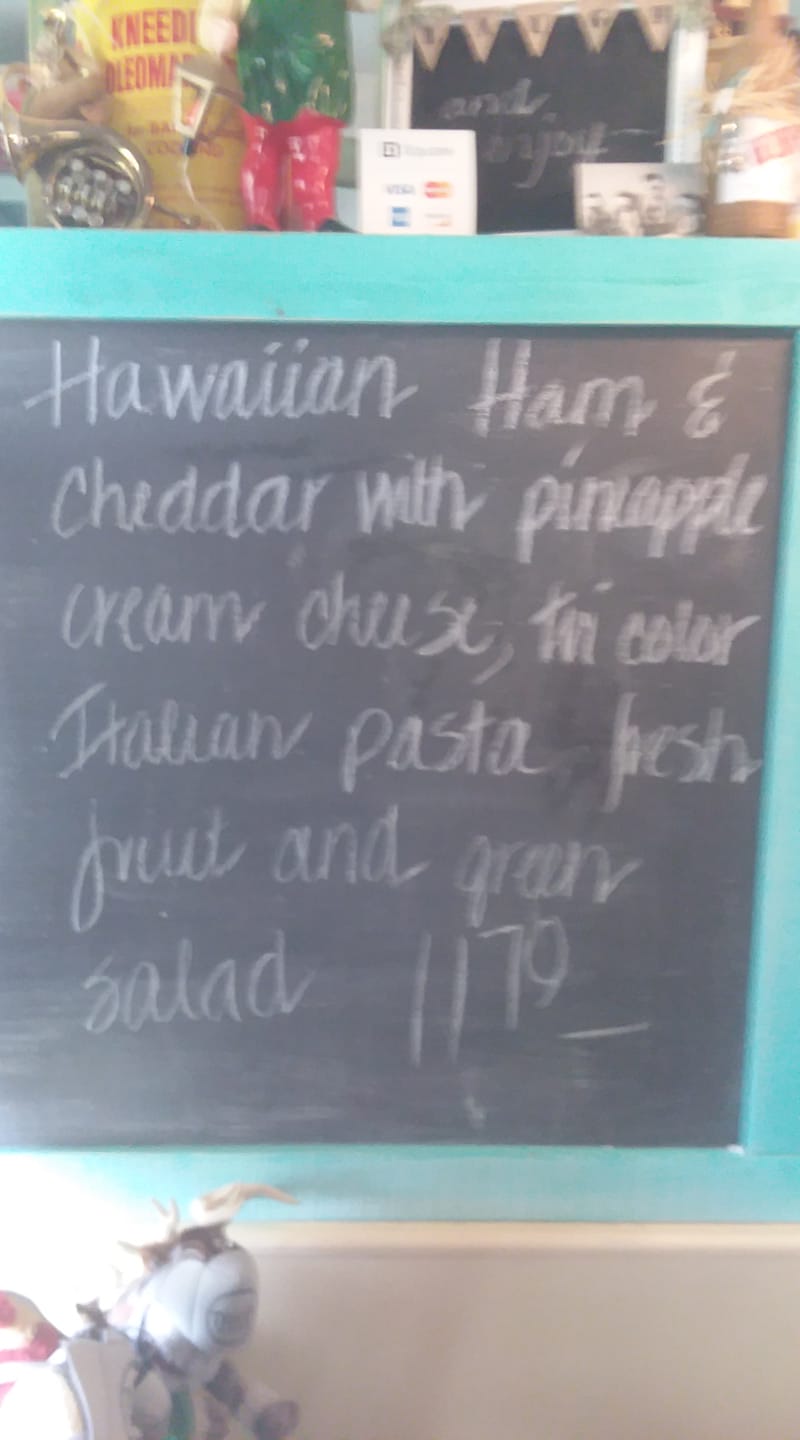 KNEEDI
OLEOMA
LAUGH
and
enjoy
Square
VISA
Hawaiian Ham &
cheddar with pineapple
cream cheese, tri color
Italian pasta, fresh
fruit and green
salad 11 79